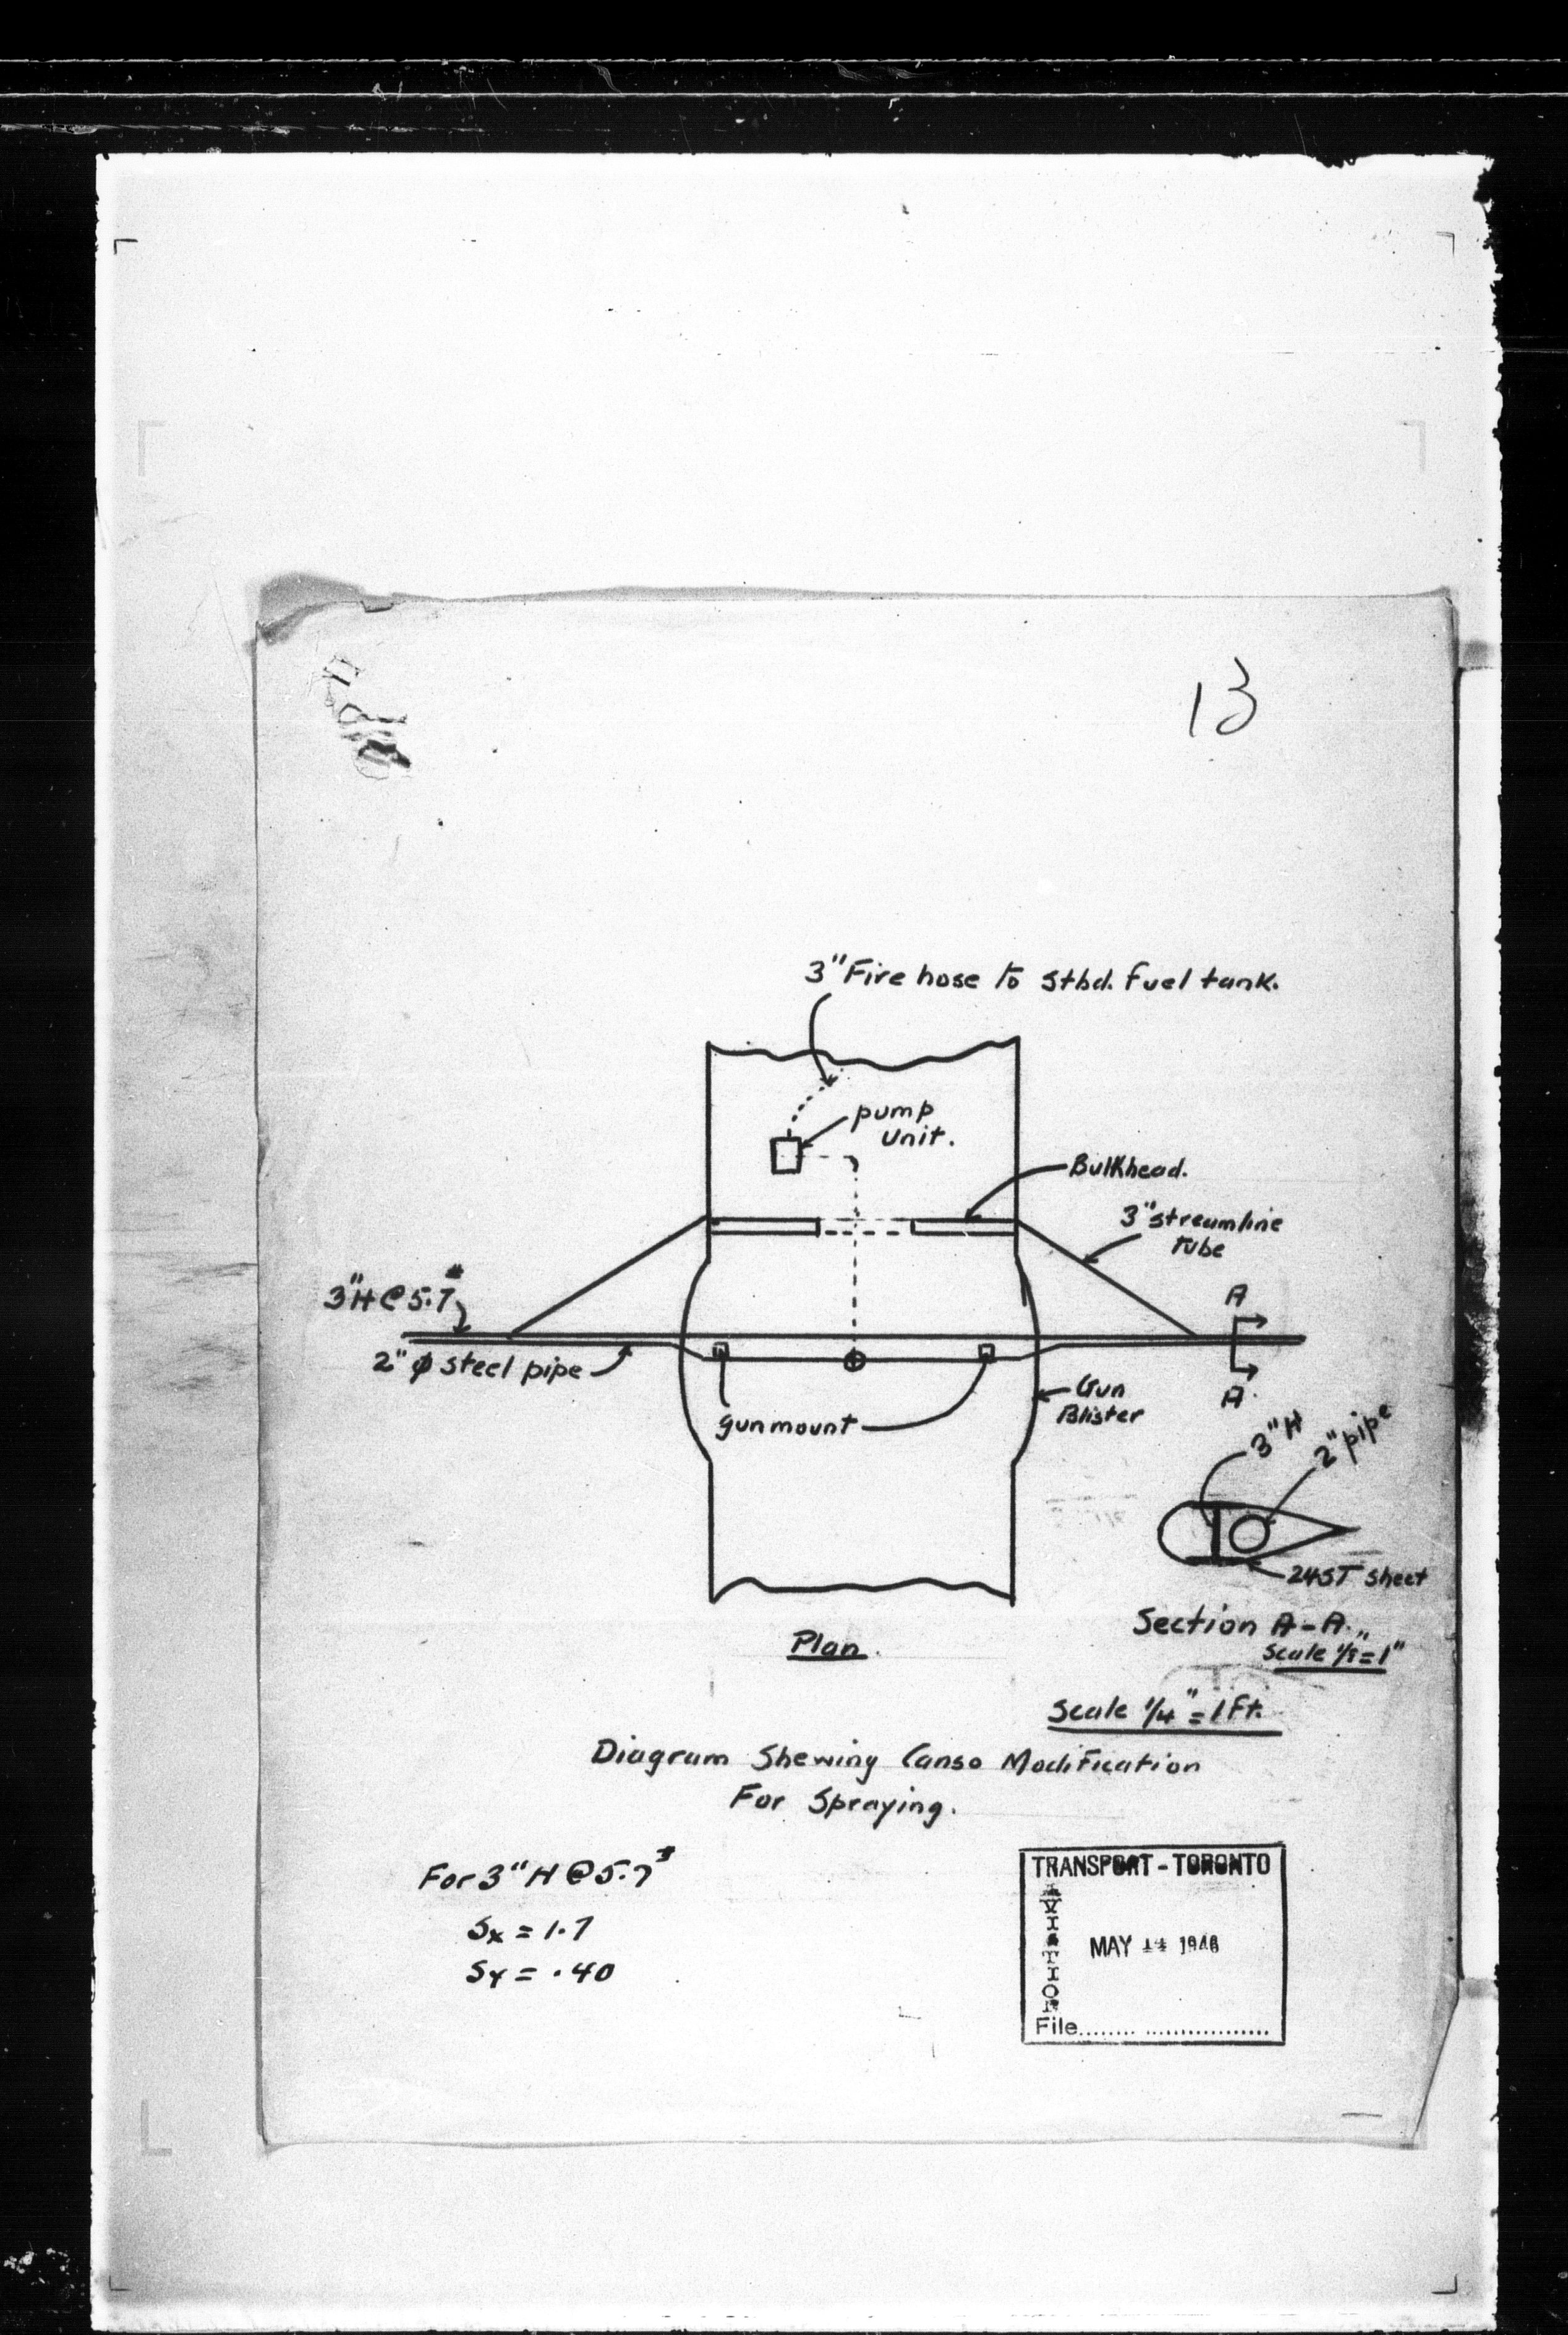 13
3" Fire hose to Stbd. fuel tank.
pump
unit.
Bulkhead.
3" streamline
tube
3"H@5.7#
2" φ steel pipe
A
A
gunmount
Gun
Blister
3"H
2" pipe
24ST sheet
Section A-A.
Scale 1/8"=1"
Plan.
Scale 1/4"=1Ft.
Diagram Shewing Canso Modification
For Spraying.
For 3" H @ 5.7#
Sx = 1.7
Sy = .40
TRANSPORT - TORONTO
AVIATION
MAY 14 1946
File